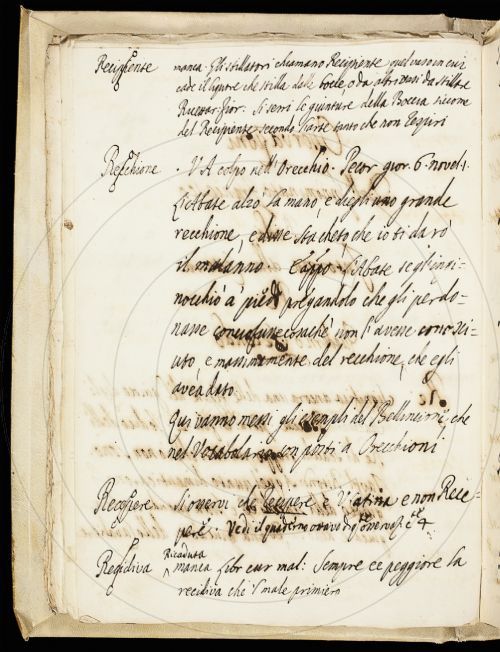 Recipiente manca. Gli stillatori chiamano Recipiente quel vaso in cui
cade il liquore che stilla dalle bocce, o da altri vasi da stillare
Ricettar. fior. Si serri le giunture della Boccia siccome
del Recipiente secondo l'arte tanto che non respiri
Recchione. V. A. colpo nell'Orecchio. Pecor. gior. 6. novel. 1.
L'Abate alzò la mano, e diegli uno grande
recchione, e disse sta cheto che io ti darò
il malanno L'Abate se gli ingi-
nocchiò a piedi pregandolo che gli perdo-
nasse conciosiunecosachè non l'avesse conosci-
uto, e massimamente del recchione, che egli
avea dato
Qui vanno messi gli esempli del Bellincioni, che
nel Vocabolario son posti a Orecchioni
Recipere Si osservi che Recipere è Latina e non Rece-
pere. Vedi il quaderno ottavo di 4
Recidiva Ricaduta
manca Libr. cur. mal: Sempre ee peggiore la
recidiva che 'l male primiero